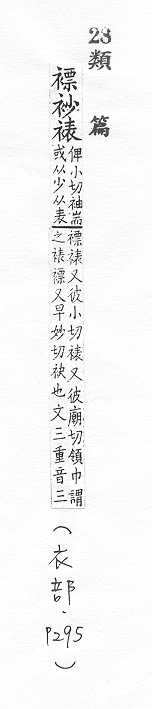 28
類篇
褾𧘡裱
俾小切袖耑
或从少从表
褾𧛼又彼小切裱又彼廟切領巾謂
之裱褾又早妙切袂也文三重音三
(衣部.P295)